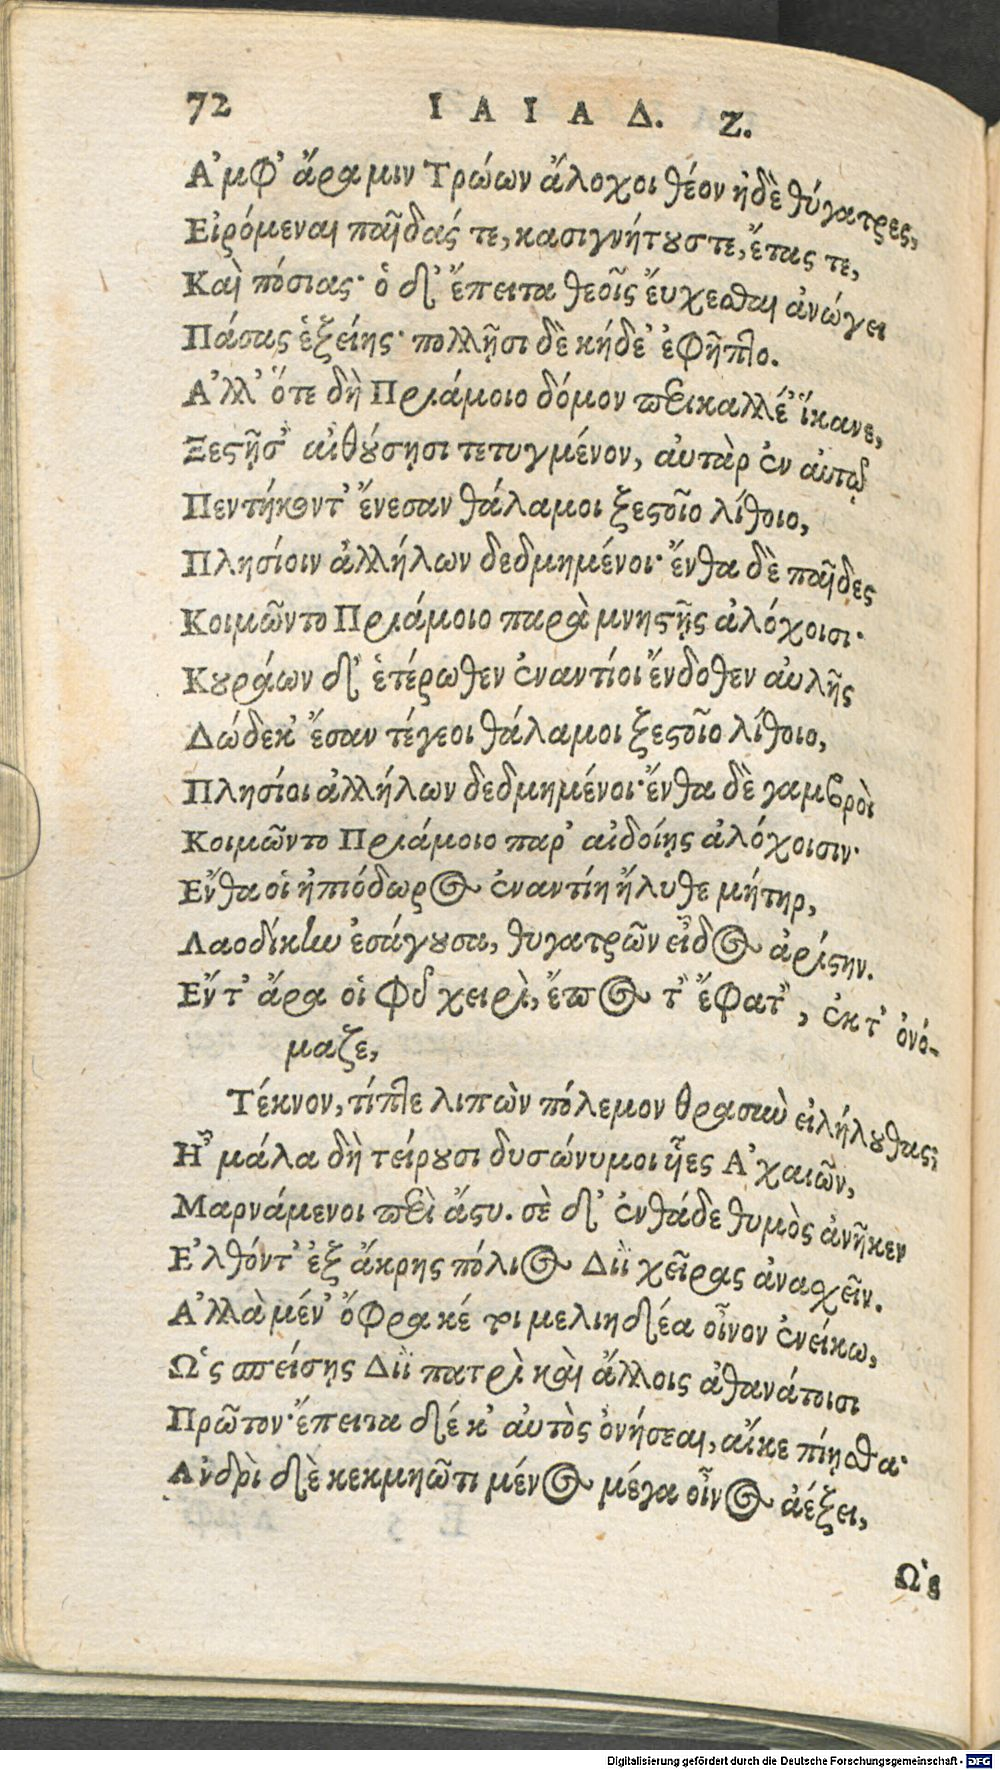 72 ΙΛΙΑΔ. Ζ.
Ἀμφ' ἄρα μιν Τρώων ἄλοχοι θέον ἠδὲ θύγατρες,
Εἰρόμεναι παῖδάς τε, κασιγνήτους τε, ἔτας τε,
Καὶ πόσιας· ὁ δ' ἔπειτα θεοῖς ἔυχεσθαι ἀνώγει
Πάσας ἑξείης· πολλῇσι δὲ κήδε' ἐφῆπτο.
Ἀλλ' ὅτε δὴ Πριάμοιο δόμον περικαλλέ' ἵκανε,
Ξεστῇσ' αἰθούσῃσι τετυγμένον, αὐτὰρ ἐν αὐτῷ
Πεντήκοντ' ἔνεσαν θάλαμοι ξεστοῖο λίθοιο,
Πλησίοιν ἀλλήλων δεδμημένοι· ἔνθα δὲ παῖδες
Κοιμῶντο Πριάμοιο παρὰ μνηστῇς ἀλόχοισι·
Κουράων δ' ἑτέρωθεν ἐναντίοι ἔνδοθεν αὐλῆς
Δώδεκ' ἔσαν τέγεοι θάλαμοι ξεστοῖο λίθοιο,
Πλησίοι ἀλλήλων δεδμημένοι· ἔνθα δὲ γαμβροὶ
Κοιμῶντο Πριάμοιο παρ' αἰδοίῃς ἀλόχοισιν·
Ἔνθα οἱ ἠπιόδωρος ἐναντίη ἤλυθε μήτηρ,
Λαοδίκην ἐσάγουσα, θυγατρῶν εἶδος ἀρίστην.
Ἔν τ' ἄρα οἱ φῦ χειρὶ, ἔπος τ' ἔφατ', ἐκ τ' ὀνό-
μαζε,
Τέκνον, τίπτε λιπὼν πόλεμον θρασὺν εἰλήλουθας;
Ἦ μάλα δὴ τείρουσι δυσώνυμοι υἷες Ἀχαιῶν,
Μαρνάμενοι περὶ ἄστυ. σὲ δ' ἐνθάδε θυμὸς ἀνῆκεν
Ἐλθόντ' ἐξ ἄκρης πόλιος Διῒ χεῖρας ἀνασχεῖν.
Ἀλλὰ μέν' ὄφρα κέ τοι μελιηδέα οἶνον ἐνείκω,
Ὡς σπείσῃς Διῒ πατρὶ καὶ ἄλλοις ἀθανάτοισι
Πρῶτον· ἔπειτα δέ κ' αὐτὸς ὀνήσεαι, αἴκε πίῃσθα·
Ἀνδρὶ δὲ κεκμηῶτι μένος μέγα οἶνος ἀέξει,
Ὡς
Digitalisierung gefördert durch die Deutsche Forschungsgemeinschaft - DFG